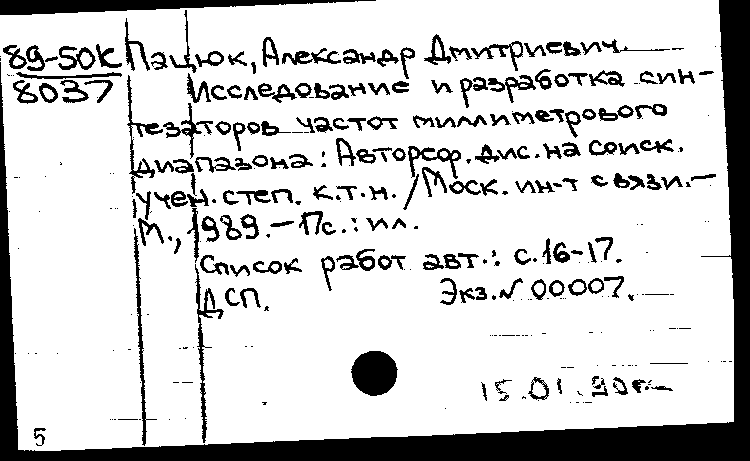 89-50К Пацюк, Александр Дмитриевич.
8037 Исследование и разработка син-
тезаторов частот миллиметрового
диапазона: Автореф. дис. на соиск.
учен. степ. к.т.н. / Моск. ин-т связи.-
М., 1989.-17с.: ил.
Список работ авт.: с.16-17.
ДСП. Экз.N 00007.
15.01.90
5